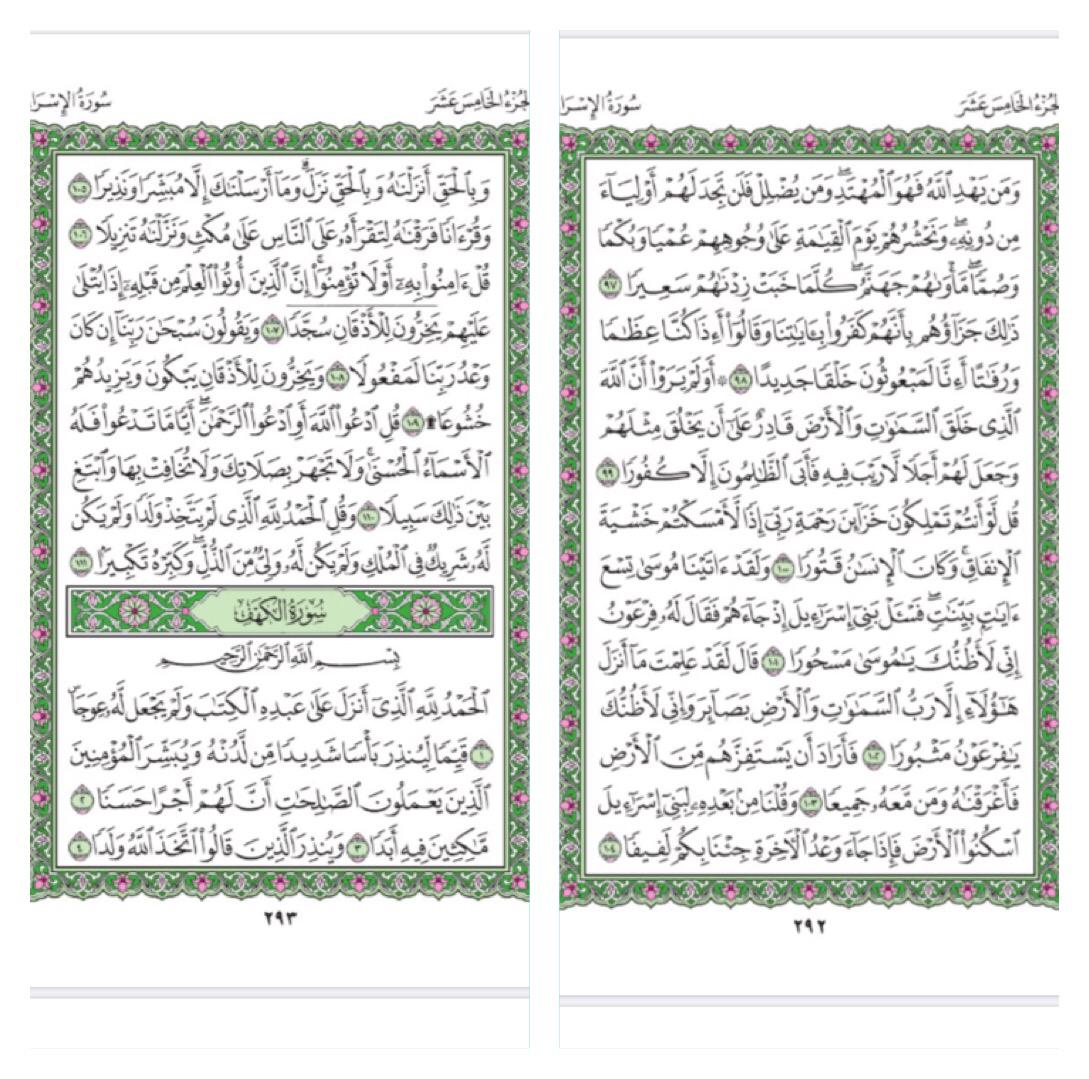 الجزء الخامس عشر
سورة الإسرا
وَمَن يَهْدِ ٱللَّهُ فَهُوَ ٱلْمُهْتَدِۖ وَمَن يُضْلِلْ فَلَن تَجِدَ لَهُمْ أَوْلِيَآءَ
مِن دُونِهِۦۖ وَنَحْشُرُهُمْ يَوْمَ ٱلْقِيَٰمَةِ عَلَىٰ وُجُوهِهِمْ عُمْيًا وَبُكْمًا
وَصُمًّاۖ مَّأْوَىٰهُمْ جَهَنَّمُۖ كُلَّمَا خَبَتْ زِدْنَٰهُمْ سَعِيرًا ٩٧
ذَٰلِكَ جَزَآؤُهُم بِأَنَّهُمْ كَفَرُوا۟ بِـَٔايَٰتِنَا وَقَالُوٓا۟ أَءِذَا كُنَّا عِظَٰمًا
وَرُفَٰتًا أَءِنَّا لَمَبْعُوثُونَ خَلْقًا جَدِيدًا ٩٨ ۞ أَوَلَمْ يَرَوْا۟ أَنَّ ٱللَّهَ
ٱلَّذِى خَلَقَ ٱلسَّمَٰوَٰتِ وَٱلْأَرْضَ قَادِرٌ عَلَىٰٓ أَن يَخْلُقَ مِثْلَهُمْ
وَجَعَلَ لَهُمْ أَجَلًا لَّا رَيْبَ فِيهِ فَأَبَى ٱلظَّٰلِمُونَ إِلَّا كُفُورًا ٩٩
قُل لَّوْ أَنتُمْ تَمْلِكُونَ خَزَآئِنَ رَحْمَةِ رَبِّىٓ إِذًا لَّأَمْسَكْتُمْ خَشْيَةَ
ٱلْإِنفَاقِۚ وَكَانَ ٱلْإِنسَٰنُ قَتُورًا ١٠٠ وَلَقَدْ ءَاتَيْنَا مُوسَىٰ تِسْعَ
ءَايَٰتٍۭ بَيِّنَٰتٍۖ فَسْـَٔلْ بَنِىٓ إِسْرَٰٓءِيلَ إِذْ جَآءَهُمْ فَقَالَ لَهُۥ فِرْعَوْنُ
إِنِّى لَأَظُنُّكَ يَٰمُوسَىٰ مَسْحُورًا ١٠١ قَالَ لَقَدْ عَلِمْتَ مَآ أَنزَلَ
هَٰٓؤُلَآءِ إِلَّا رَبُّ ٱلسَّمَٰوَٰتِ وَٱلْأَرْضِ بَصَآئِرَ وَإِنِّى لَأَظُنُّكَ
يَٰفِرْعَوْنُ مَثْبُورًا ١٠٢ فَأَرَادَ أَن يَسْتَفِزَّهُم مِّنَ ٱلْأَرْضِ
فَأَغْرَقْنَٰهُ وَمَن مَّعَهُۥ جَمِيعًا ١٠٣ وَقُلْنَا مِنۢ بَعْدِهِۦ لِبَنِىٓ إِسْرَٰٓءِيلَ
ٱسْكُنُوا۟ ٱلْأَرْضَ فَإِذَا جَآءَ وَعْدُ ٱلْءَاخِرَةِ جِئْنَا بِكُمْ لَفِيفًا ١٠٤
٢٩٢
الجزء الخامس عشر
سورة الإسرا
وَبِٱلْحَقِّ أَنزَلْنَٰهُ وَبِٱلْحَقِّ نَزَلَۗ وَمَآ أَرْسَلْنَٰكَ إِلَّا مُبَشِّرًا وَنَذِيرًا ١٠٥
وَقُرْءَانًا فَرَقْنَٰهُ لِتَقْرَأَهُۥ عَلَى ٱلنَّاسِ عَلَىٰ مُكْثٍ وَنَزَّلْنَٰهُ تَنزِيلًا ١٠٦
قُلْ ءَامِنُوا۟ بِهِۦٓ أَوْ لَا تُؤْمِنُوٓا۟ۚ إِنَّ ٱلَّذِينَ أُوتُوا۟ ٱلْعِلْمَ مِن قَبْلِهِۦٓ إِذَا يُتْلَىٰ
عَلَيْهِمْ يَخِرُّونَ لِلْأَذْقَانِ سُجَّدًا ١٠٧ وَيَقُولُونَ سُبْحَٰنَ رَبِّنَآ إِن كَانَ
وَعْدُ رَبِّنَا لَمَفْعُولًا ١٠٨ وَيَخِرُّونَ لِلْأَذْقَانِ يَبْكُونَ وَيَزِيدُهُمْ
خُشُوعًا ۩ ١٠٩ قُلِ ٱدْعُوا۟ ٱللَّهَ أَوِ ٱدْعُوا۟ ٱلرَّحْمَٰنَۖ أَيًّا مَّا تَدْعُوا۟ فَلَهُ
ٱلْأَسْمَآءُ ٱلْحُسْنَىٰۚ وَلَا تَجْهَرْ بِصَلَاتِكَ وَلَا تُخَافِتْ بِهَا وَٱبْتَغِ
بَيْنَ ذَٰلِكَ سَبِيلًا ١١٠ وَقُلِ ٱلْحَمْدُ لِلَّهِ ٱلَّذِى لَمْ يَتَّخِذْ وَلَدًا وَلَمْ يَكُن
لَّهُۥ شَرِيكٌ فِى ٱلْمُلْكِ وَلَمْ يَكُن لَّهُۥ وَلِىٌّ مِّنَ ٱلذُّلِّۖ وَكَبِّرْهُ تَكْبِيرًۢا ١١١
سُورَةُ الكَهْفِ
بِسْمِ ٱللَّهِ ٱلرَّحْمَٰنِ ٱلرَّحِيمِ
ٱلْحَمْدُ لِلَّهِ ٱلَّذِىٓ أَنزَلَ عَلَىٰ عَبْدِهِ ٱلْكِتَٰبَ وَلَمْ يَجْعَل لَّهُۥ عِوَجَاۜ
١ قَيِّمًا لِّيُنذِرَ بَأْسًا شَدِيدًا مِّن لَّدُنْهُ وَيُبَشِّرَ ٱلْمُؤْمِنِينَ
ٱلَّذِينَ يَعْمَلُونَ ٱلصَّٰلِحَٰتِ أَنَّ لَهُمْ أَجْرًا حَسَنًا ٢
مَّٰكِثِينَ فِيهِ أَبَدًا ٣ وَيُنذِرَ ٱلَّذِينَ قَالُوا۟ ٱتَّخَذَ ٱللَّهُ وَلَدًا ٤
٢٩٣